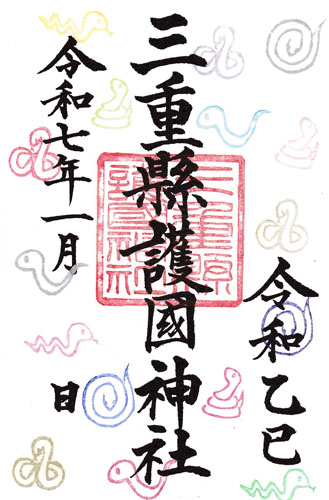 令和乙巳
三重縣護國神社
令和七年一月　日
三重縣護國神社